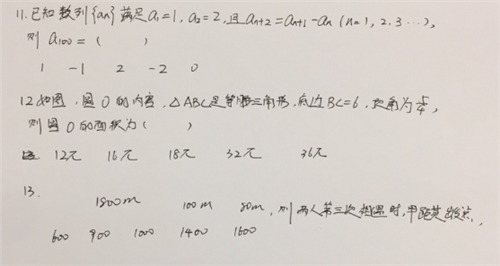 11. 已知数列{an}满足a1=1, a2=2, 且an+2=an+1-an (n=1, 2. 3 ···),
则 a100 = (      )
1  -1  2  -2  0
12 如图, 圆O的内含, △ABC是等腰三角形, 底边BC=6, 顶角为π/4,
则圆O的面积为(      )
12π  16π  18π  32π  36π
13.
1800m  100m  80m, 则两人第三次相遇时, 甲距其出发点
600  900  1000  1400  1600